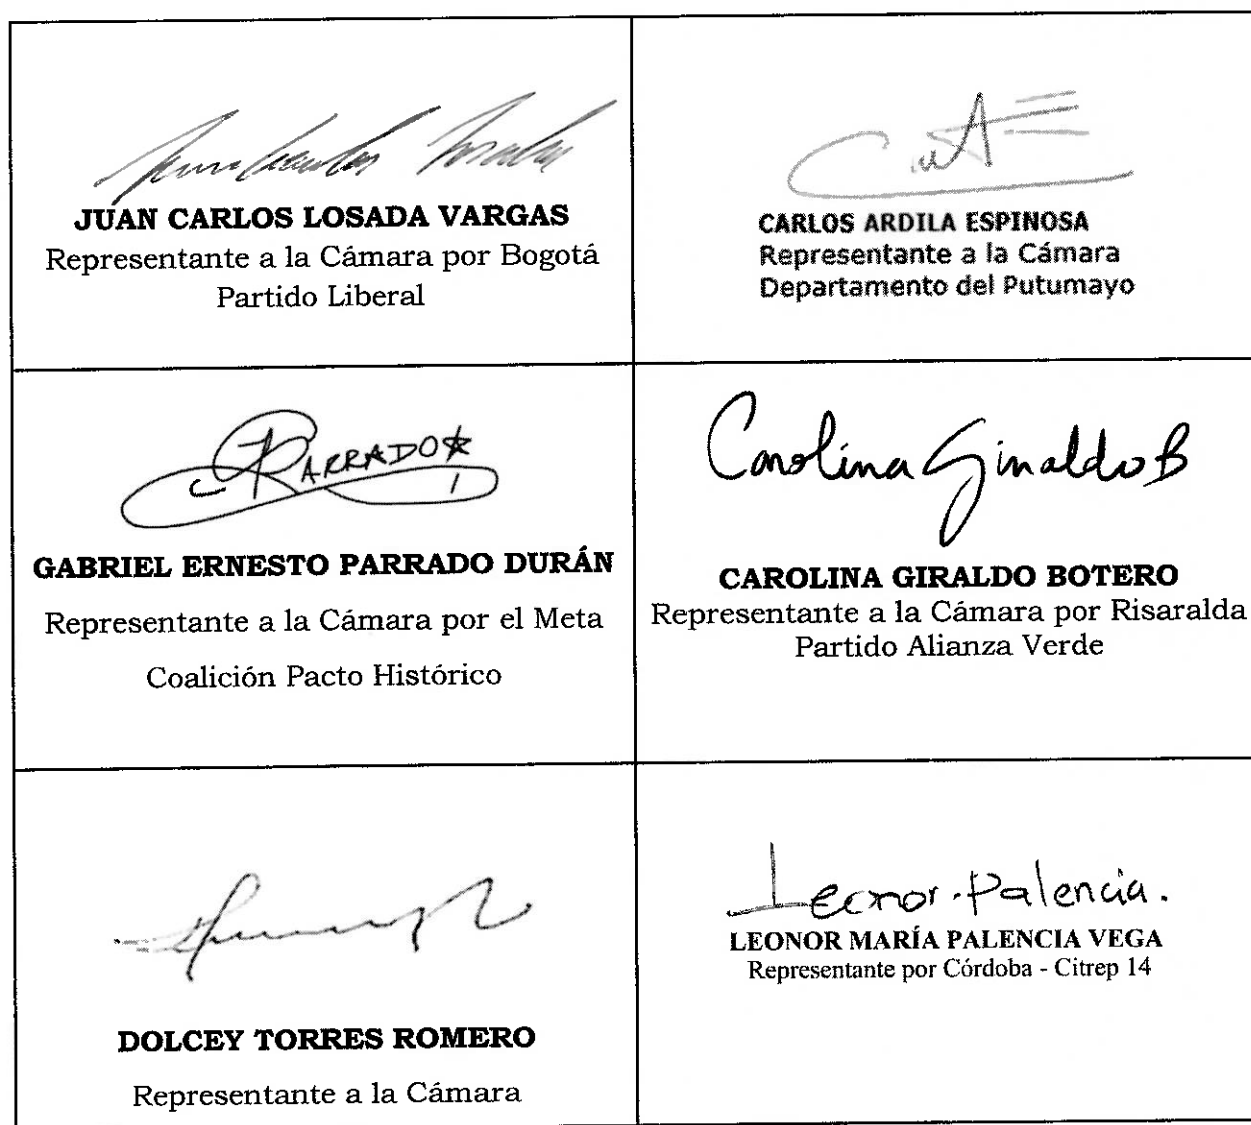 JUAN CARLOS LOSADA VARGAS
Representante a la Cámara por Bogotá
Partido Liberal
CARLOS ARDILA ESPINOSA
Representante a la Cámara
Departamento del Putumayo
PARRADO
GABRIEL ERNESTO PARRADO DURÁN
Representante a la Cámara por el Meta
Coalición Pacto Histórico
Carolina Giraldo B
CAROLINA GIRALDO BOTERO
Representante a la Cámara por Risaralda
Partido Alianza Verde
DOLCEY TORRES ROMERO
Representante a la Cámara
Leonor Palencia.
LEONOR MARÍA PALENCIA VEGA
Representante por Córdoba - Citrep 14